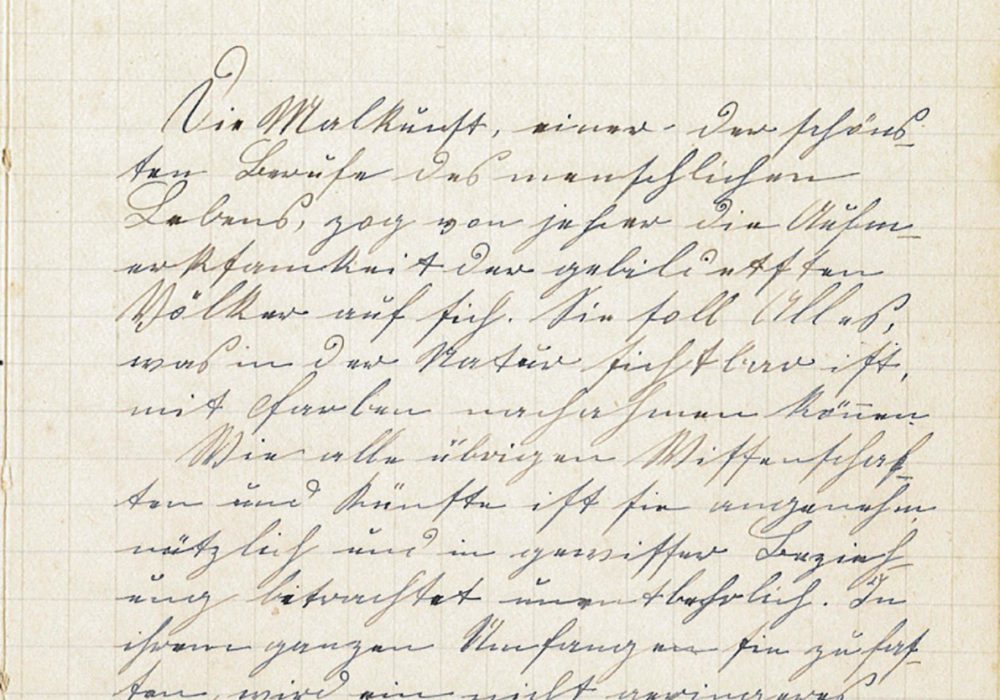 Die Malkunst, einer der schöns-
ten Berufe des menschlichen
Lebens, zog von jeher die Aufm-
erksamkeit der gebildetsten
Völker auf sich. Sie soll Alles,
was in der Natur sichtbar ist,
mit Farben nachahmen können.
Wie alle übrigen Wissenschaf-
ten und Künste ist sie angenehm,
nützlich und in gewisser Bezieh-
ung betrachtet unentbehrlich. In
ihrem ganzen Umfange sie zu faß-
ten, wird ein nicht geringeres